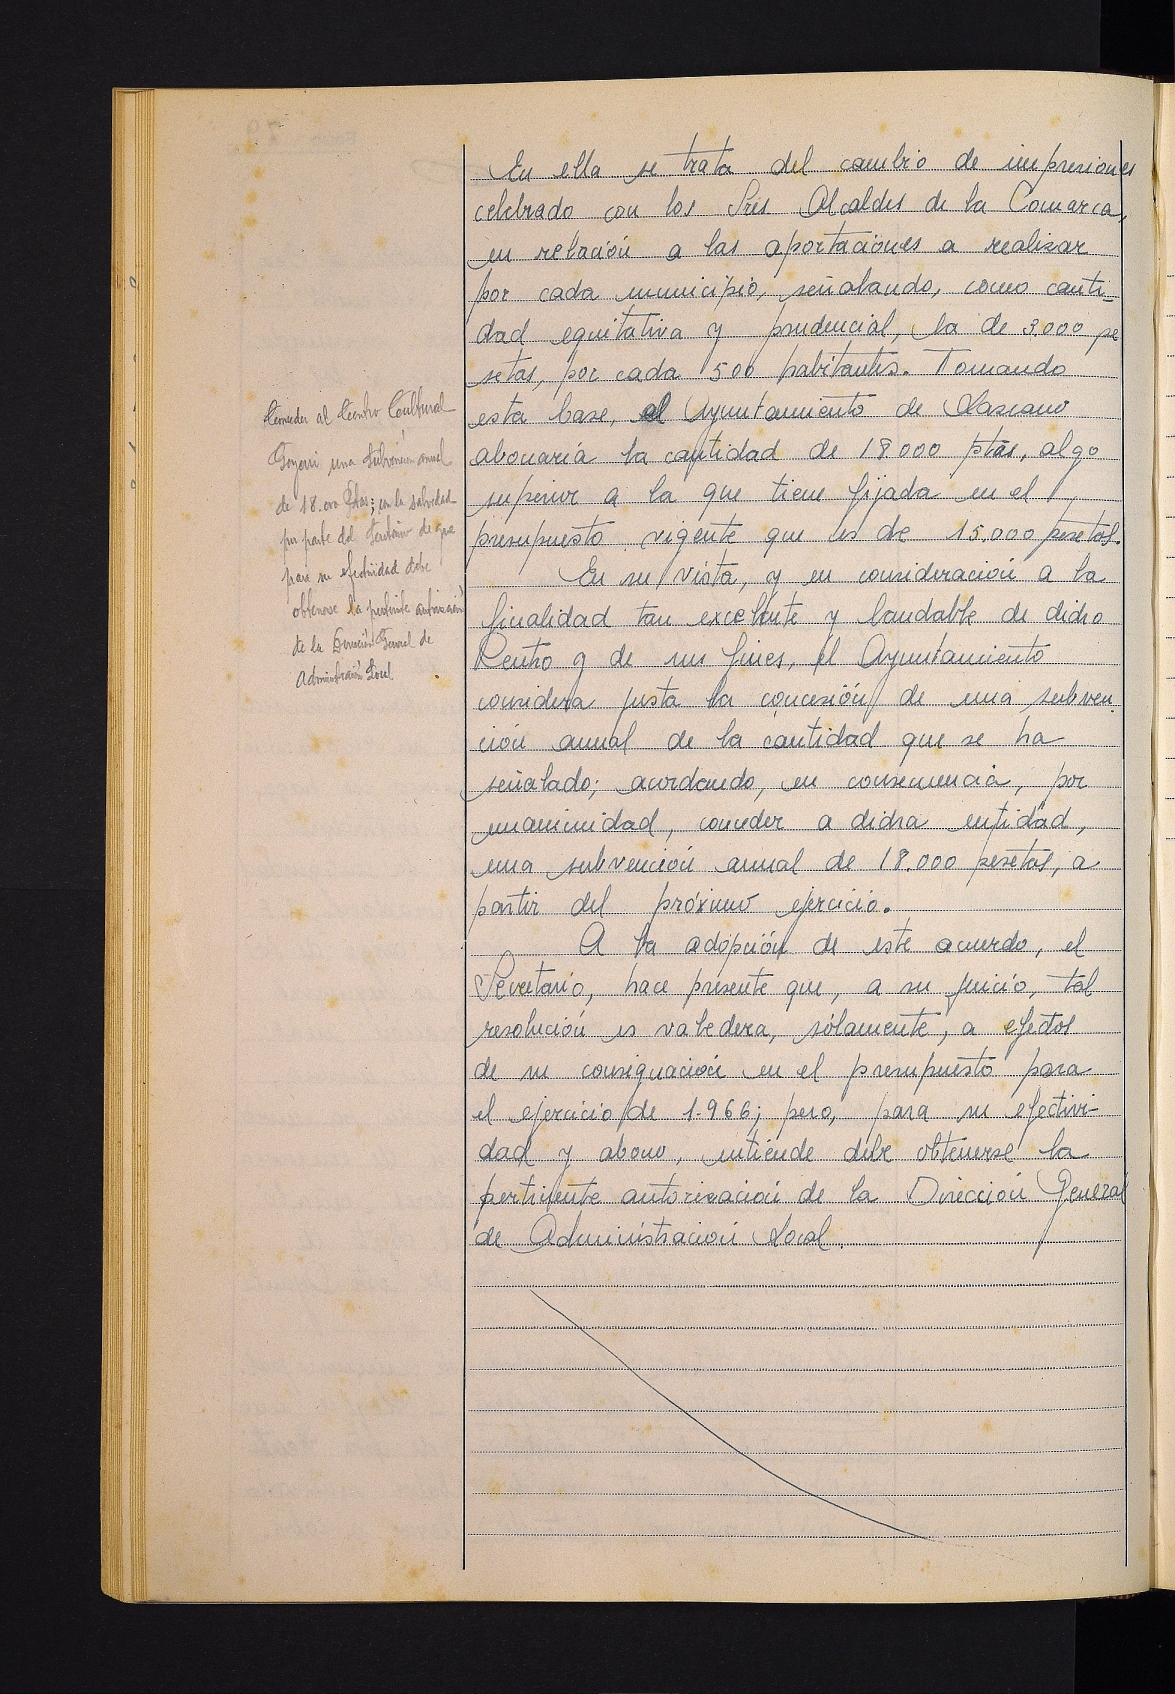 En ella se trata del cambio de impresiones
celebrado con los Sres Alcaldes de la Comarca,
en relación a las aportaciones a realizar
por cada municipio, señalando, como canti-
dad equitativa y prudencial, la de 3.000 pe
setas, por cada 500 habitantes. Tomando
esta base, el Ayuntamiento de Lazcano
abonaría la cantidad de 18.000 ptas, algo
superior a la que tiene fijada en el
presupuesto vigente que es de 15.000 pesetas.
En su vista, y en consideración a la
finalidad tan excelente y laudable de dicho
Centro y de sus fines, el Ayuntamiento
considera justa la concesión de una subven-
ción anual de la cantidad que se ha
señalado; acordando, en consecuencia, por
unanimidad, conceder a dicha entidad,
una subvención anual de 18.000 pesetas, a
partir del próximo ejercicio.
A la adopción de este acuerdo, el
Secretario, hace presente que, a su juicio, tal
resolución es valedera, sólamente, a efectos
de su consignación en el presupuesto para
el ejercicio de 1.966; pero, para su efectivi-
dad y abono, entiende debe obtenerse la
pertinente autorización de la Dirección General
de Administración Local.
Conceder al Centro Cultural
Goyerri una subvención anual
de 18.000 Ptas; con la salvedad
por parte del Secretario de que
para su efectividad debe
obtenerse la pertinente autorización
de la Dirección General de
Administración Local